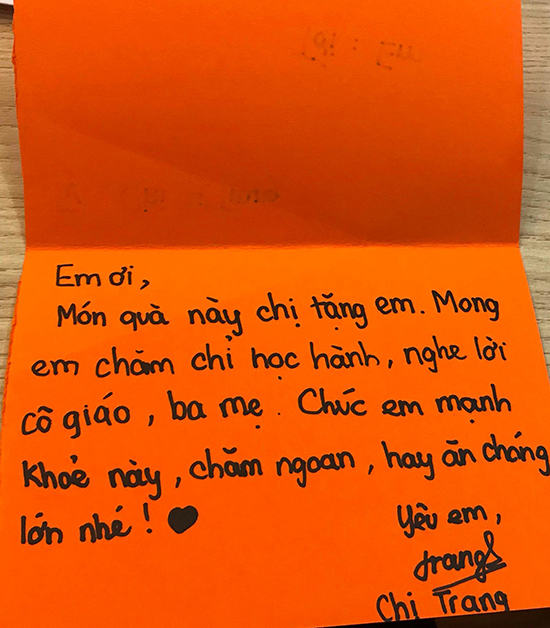 Em ơi,
Món quà này chị tặng em. Mong
em chăm chỉ học hành, nghe lời
cô giáo, ba mẹ. Chúc em mạnh
khoẻ này, chăm ngoan, hay ăn chóng
lớn nhé!
Yêu em,
Trang
Chị Trang